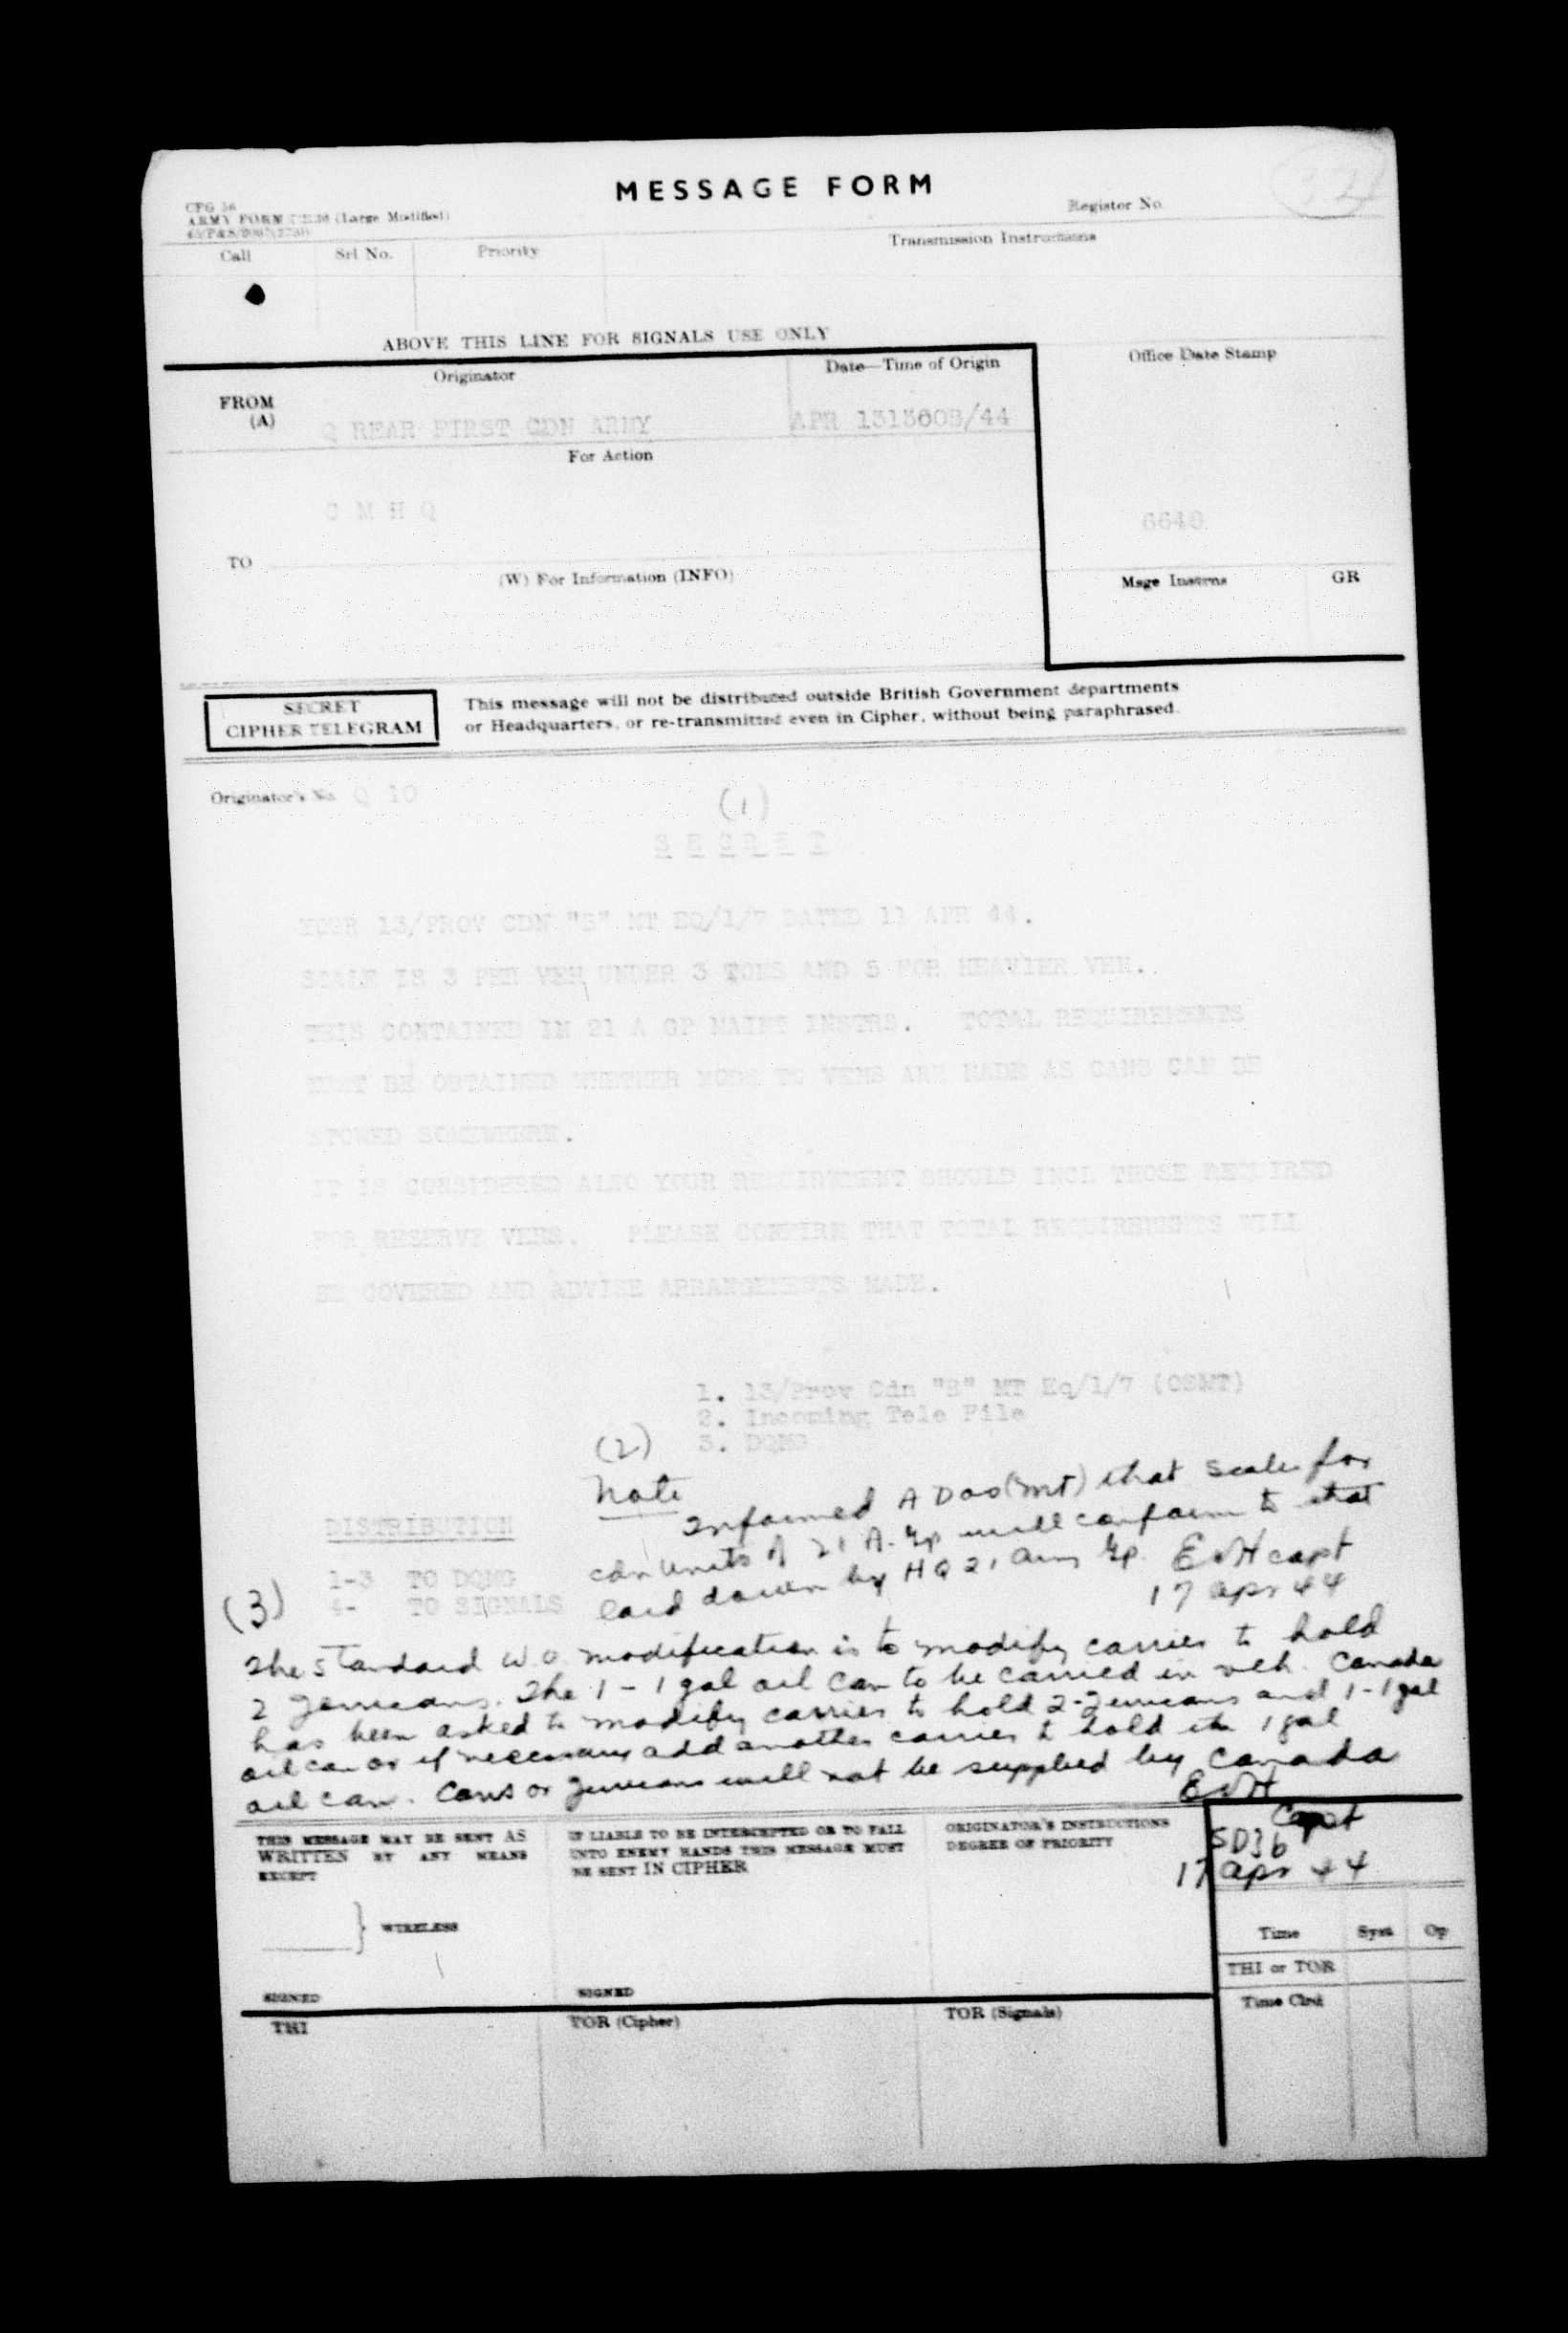 MESSAGE FORM
CFG 56
ARMY FORM (Large Modified)
Register No.
Call Srl No. Priority Transmission Instructions
ABOVE THIS LINE FOR SIGNALS USE ONLY
Originator Date—Time of Origin Office Date Stamp
FROM
(A)
Q REAR FIRST CDN ARMY APR 131360B/44
For Action
C M H Q
6640
TO
(W) For Information (INFO)
Msge Instrns GR
SECRET
CIPHER TELEGRAM
This message will not be distributed outside British Government departments
or Headquarters, or re-transmitted even in Cipher, without being paraphrased.
Originator's No. Q 10
(1)
S E C R E T
YOUR 13/PROV CDN "B" MT EQ/1/7 DATED 11 APR 44.
SCALE IS 3 PER VEH UNDER 3 TONS AND 5 FOR HEAVIER VEH.
THIS CONTAINED IN 21 A GP MAINT INSTRS. TOTAL REQUIREMENTS
MUST BE OBTAINED WHETHER MODS TO VEHS ARE MADE AS CANS CAN BE
STOWED SOMEWHERE.
IT IS CONSIDERED ALSO YOUR REQUIREMENT SHOULD INCL THOSE REQUIRED
FOR RESERVE VEHS. PLEASE CONFIRM THAT TOTAL REQUIREMENTS WILL
BE COVERED AND ADVISE ARRANGEMENTS MADE.
1. 13/Prov Cdn "B" MT Eq/1/7 (OSMT)
2. Incoming Tele File
3. DQMG
(2)
Note
Informed A Dos(MT) that scale for
cdn units of 21 A. Gp will conform to that
laid down by HQ 21 Army Gp. EVH capt
17 apr 44
DISTRIBUTION
1-3 TO DQMG
4- TO SIGNALS
(3)
The standard W.O. modification is to modify carrier to hold
2 Jerricans. The 1 - 1 gal oil can to be carried in veh. Canada
has been asked to modify carrier to hold 2-Jerricans and 1-1 gal
oil can or if necessary add another carrier to hold the 1 gal
oil can. Cans or Jerricans will not be supplied by Canada
EVH
Capt
SD3b
17 apr 44
THIS MESSAGE MAY BE SENT AS
WRITTEN BY ANY MEANS
EXCEPT
WIRELESS
SIGNED
IF LIABLE TO BE INTERCEPTED OR TO FALL
INTO ENEMY HANDS THIS MESSAGE MUST
BE SENT IN CIPHER
SIGNED
ORIGINATOR'S INSTRUCTIONS
DEGREE OF PRIORITY
Time Syst Op
THI or TOR
Time Clrd
THI TOR (Cipher) TOR (Signals)